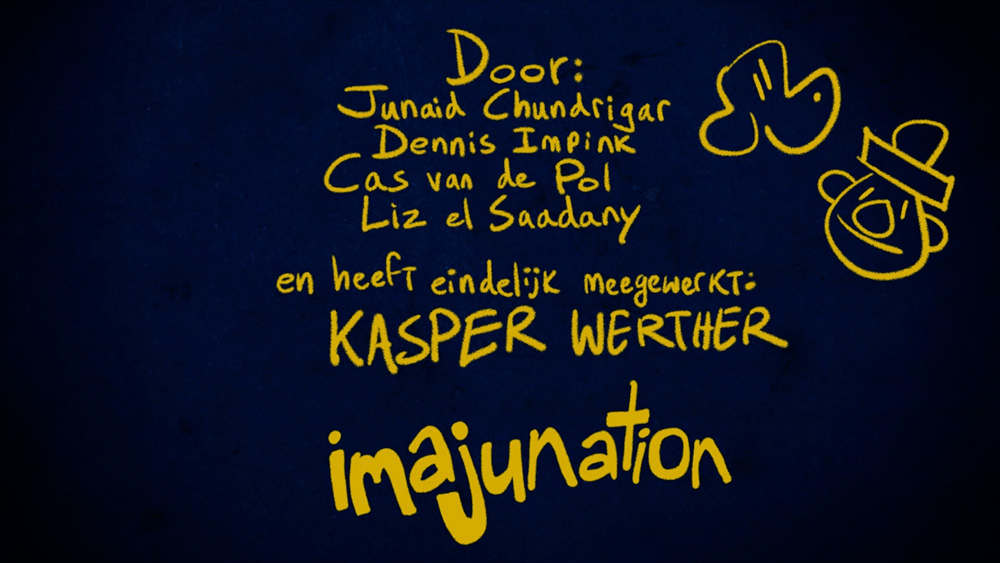 Door:
Junaid Chundrigar
Dennis Impink
Cas van de Pol
Liz el Saadany
en heeft eindelijk meegewerkt:
KASPER WERTHER
imajunation